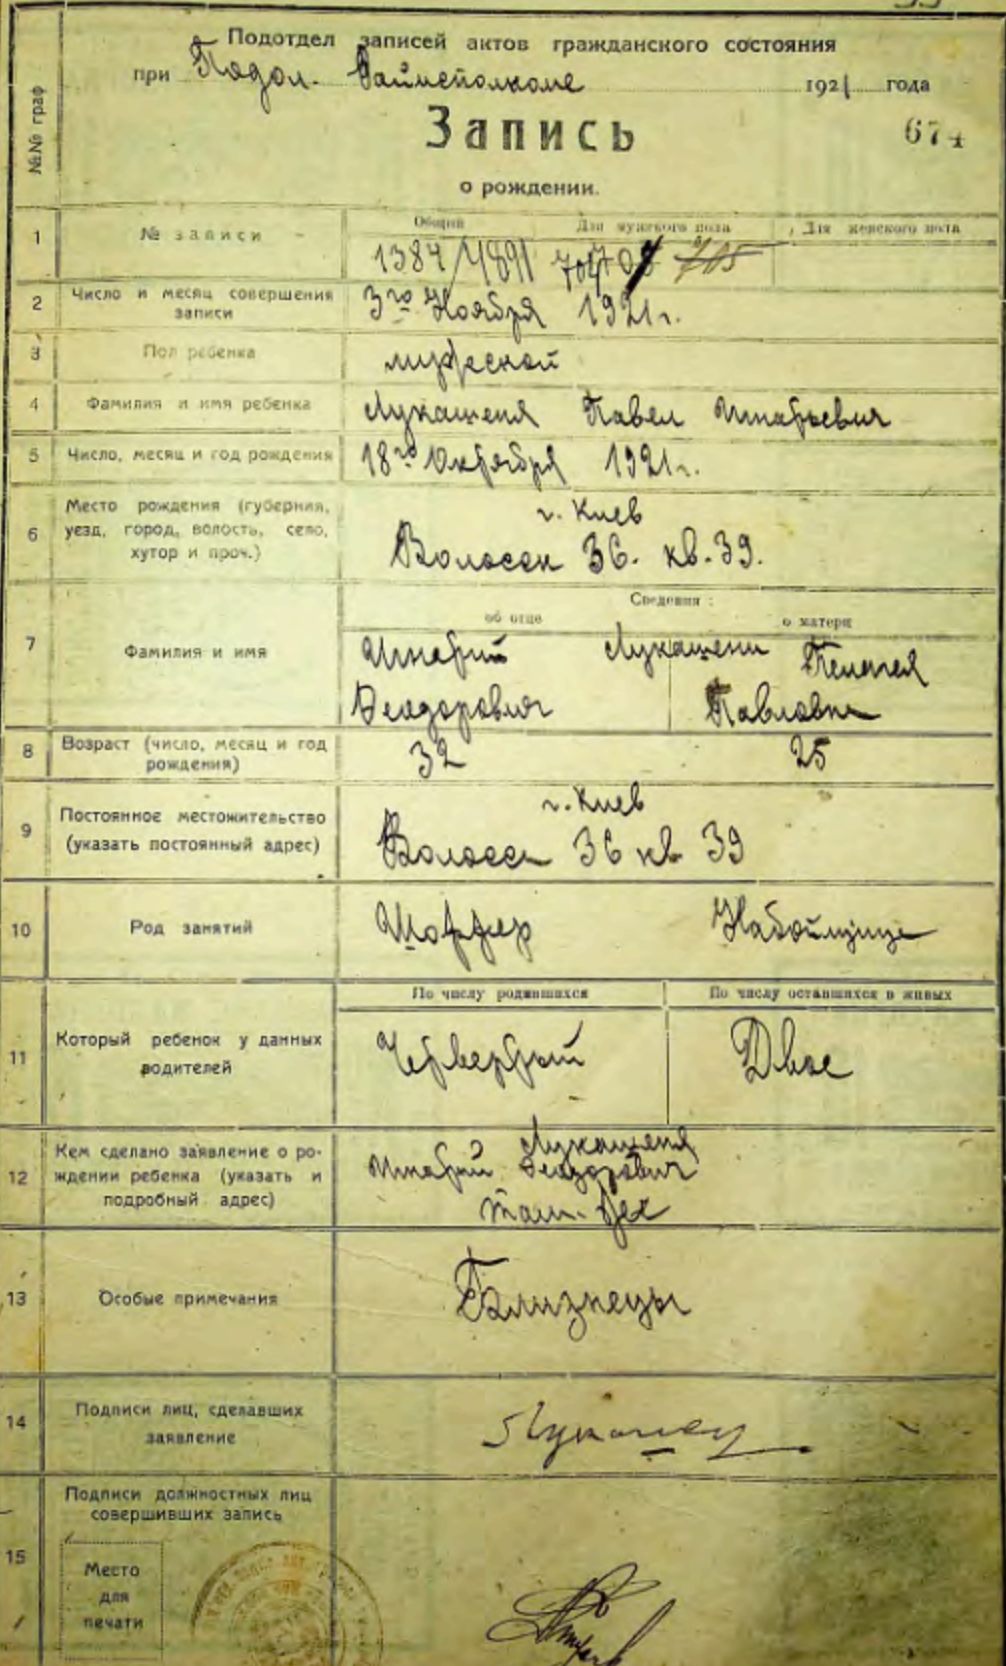 Подотдел записей актов гражданского состояния
при Подол. Райисполкоме 1921 года
№№ граф
Запись
674
о рождении.
1 № записи
Общий Для мужского пола Для женского пола
1384/4891 705
2 Число и месяц совершения записи
3го Ноября 1921 г.
3 Пол ребенка
мужеской
4 Фамилия и имя ребенка
Лукашеня Павел Игнатьевич
5 Число, месяц и год рождения
18го Октября 1921 г.
6 Место рождения (губерния,
уезд, город, волость, село,
хутор и проч.)
г. Киев
Волосск 36. кв. 39.
Сведения:
об отце о матери
7 Фамилия и имя
Игнатий Лукашени Пелагея
Феодорович Павловна
8 Возраст (число, месяц и год
рождения)
32 25
9 Постоянное местожительство
(указать постоянный адрес)
г. Киев
36 кв 39
10 Род занятий
Шоффер Набойщица
По числу родившихся По числу оставшихся в живых
11 Который ребенок у данных
родителей
Четвертый Двое
12 Кем сделано заявление о ро-
ждении ребенка (указать и
подробный адрес)
Лукашеня
Игнатий Феодорович
там-же
13 Особые примечания
Близнецы
14 Подписи лиц, сделавших
заявление
15 Подписи должностных лиц
совершивших запись
Место
для
печати